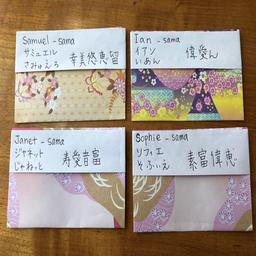 Samuel - sama
サミュエル
さみゅえる
幸美悠恵留
Ian - sama
イアン
いあん
偉愛ん
Janet - sama
ジャネット
じゃねっと
寿愛音富
Sophie - sama
ソフィエ
そふぃえ
素富偉恵